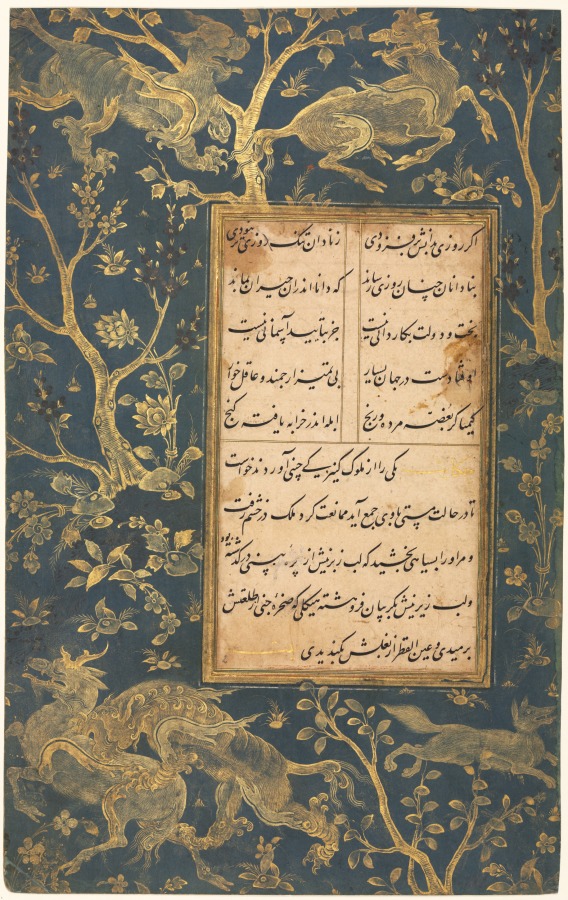 اگر روزی بدانش بر فزودی ز نادان تنگ روزی تر نبودی
بنادانان چنان روزی رساند که دانا اندران حیران بماند
بخت و دولت بکاردانی نیست جز بتأیید آسمانی نیست
اوفتادست در جهان بسیار بی تمییز ارجمند و عاقل خوار
کیمیاگر بغصه مرده و رنج ابله اندر خرابه یافته گنج
یکی را از ملوک کنیزکی چینی آوردند خواست
تا در حالت مستی با وی جمع آید ممانعت کرد ملک در خشم رفت
و مر او را بسیاهی بخشید که لب زبرینش از پره بینی در گذشته بود
و لب زیرینش بگریبان فروهشته هیکلی که صخره جنی از طلعتش
برمیدی و عین القطر از بغلش بگندیدی